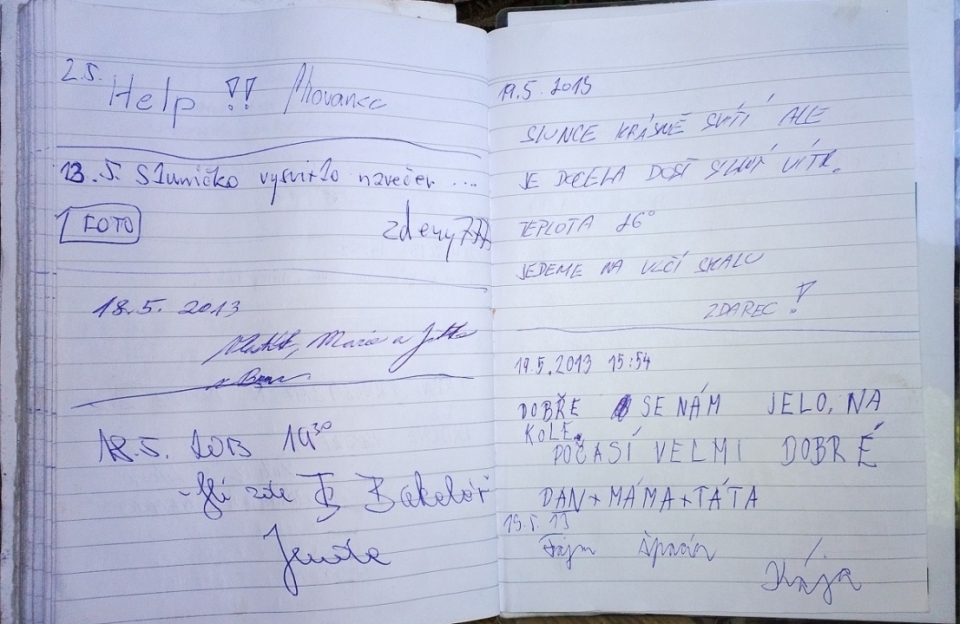 2.5. Help !!
13.5. Sluníčko vysvitlo navečer ...
FOTO
zdeny
18.5. 2013
Marie a
18.5. 2013 19³⁰
zde
19.5. 2013
SLUNCE KRÁSNĚ SVÍTÍ ALE
JE DOCELA DOST SILNÝ VÍTR.
TEPLOTA 26°
JEDEME NA VLČÍ SKALU
ZDAREC!
19.5.2013 15:54
DOBŘE SE NÁM JELO, NA
KOLE.
POČASÍ VELMI DOBRÉ
DAN + MÁMA + TÁTA
19.5. 13
Fajn
Kája